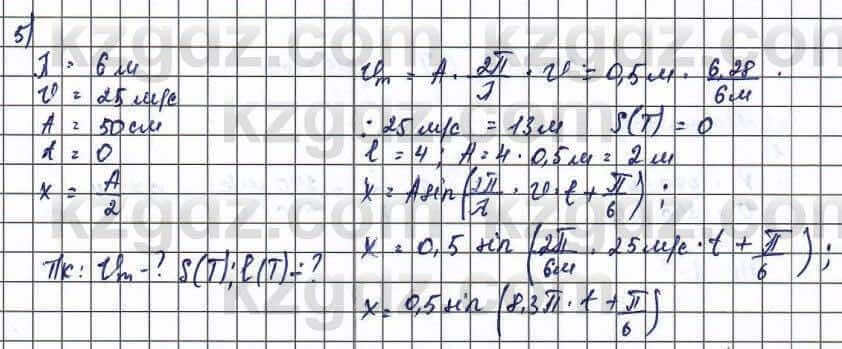 5)
λ = 6 м
υ = 25 м/с
A = 50 см
t = 0
x = A/2
Тк: υm - ? S(T); ℓ(T) - ?
υm = A · 2π/λ · υ = 0,5 м · 6,28/6м ·
· 25 м/с = 13 м S(T) = 0
ℓ = 4; A = 4 · 0,5 м = 2 м
x = A sin(2π/λ · υ · t + π/6);
x = 0,5 sin(2π/6м · 25 м/с · t + π/6);
x = 0,5 sin(8,3π · t + π/6)
kzgdz.com